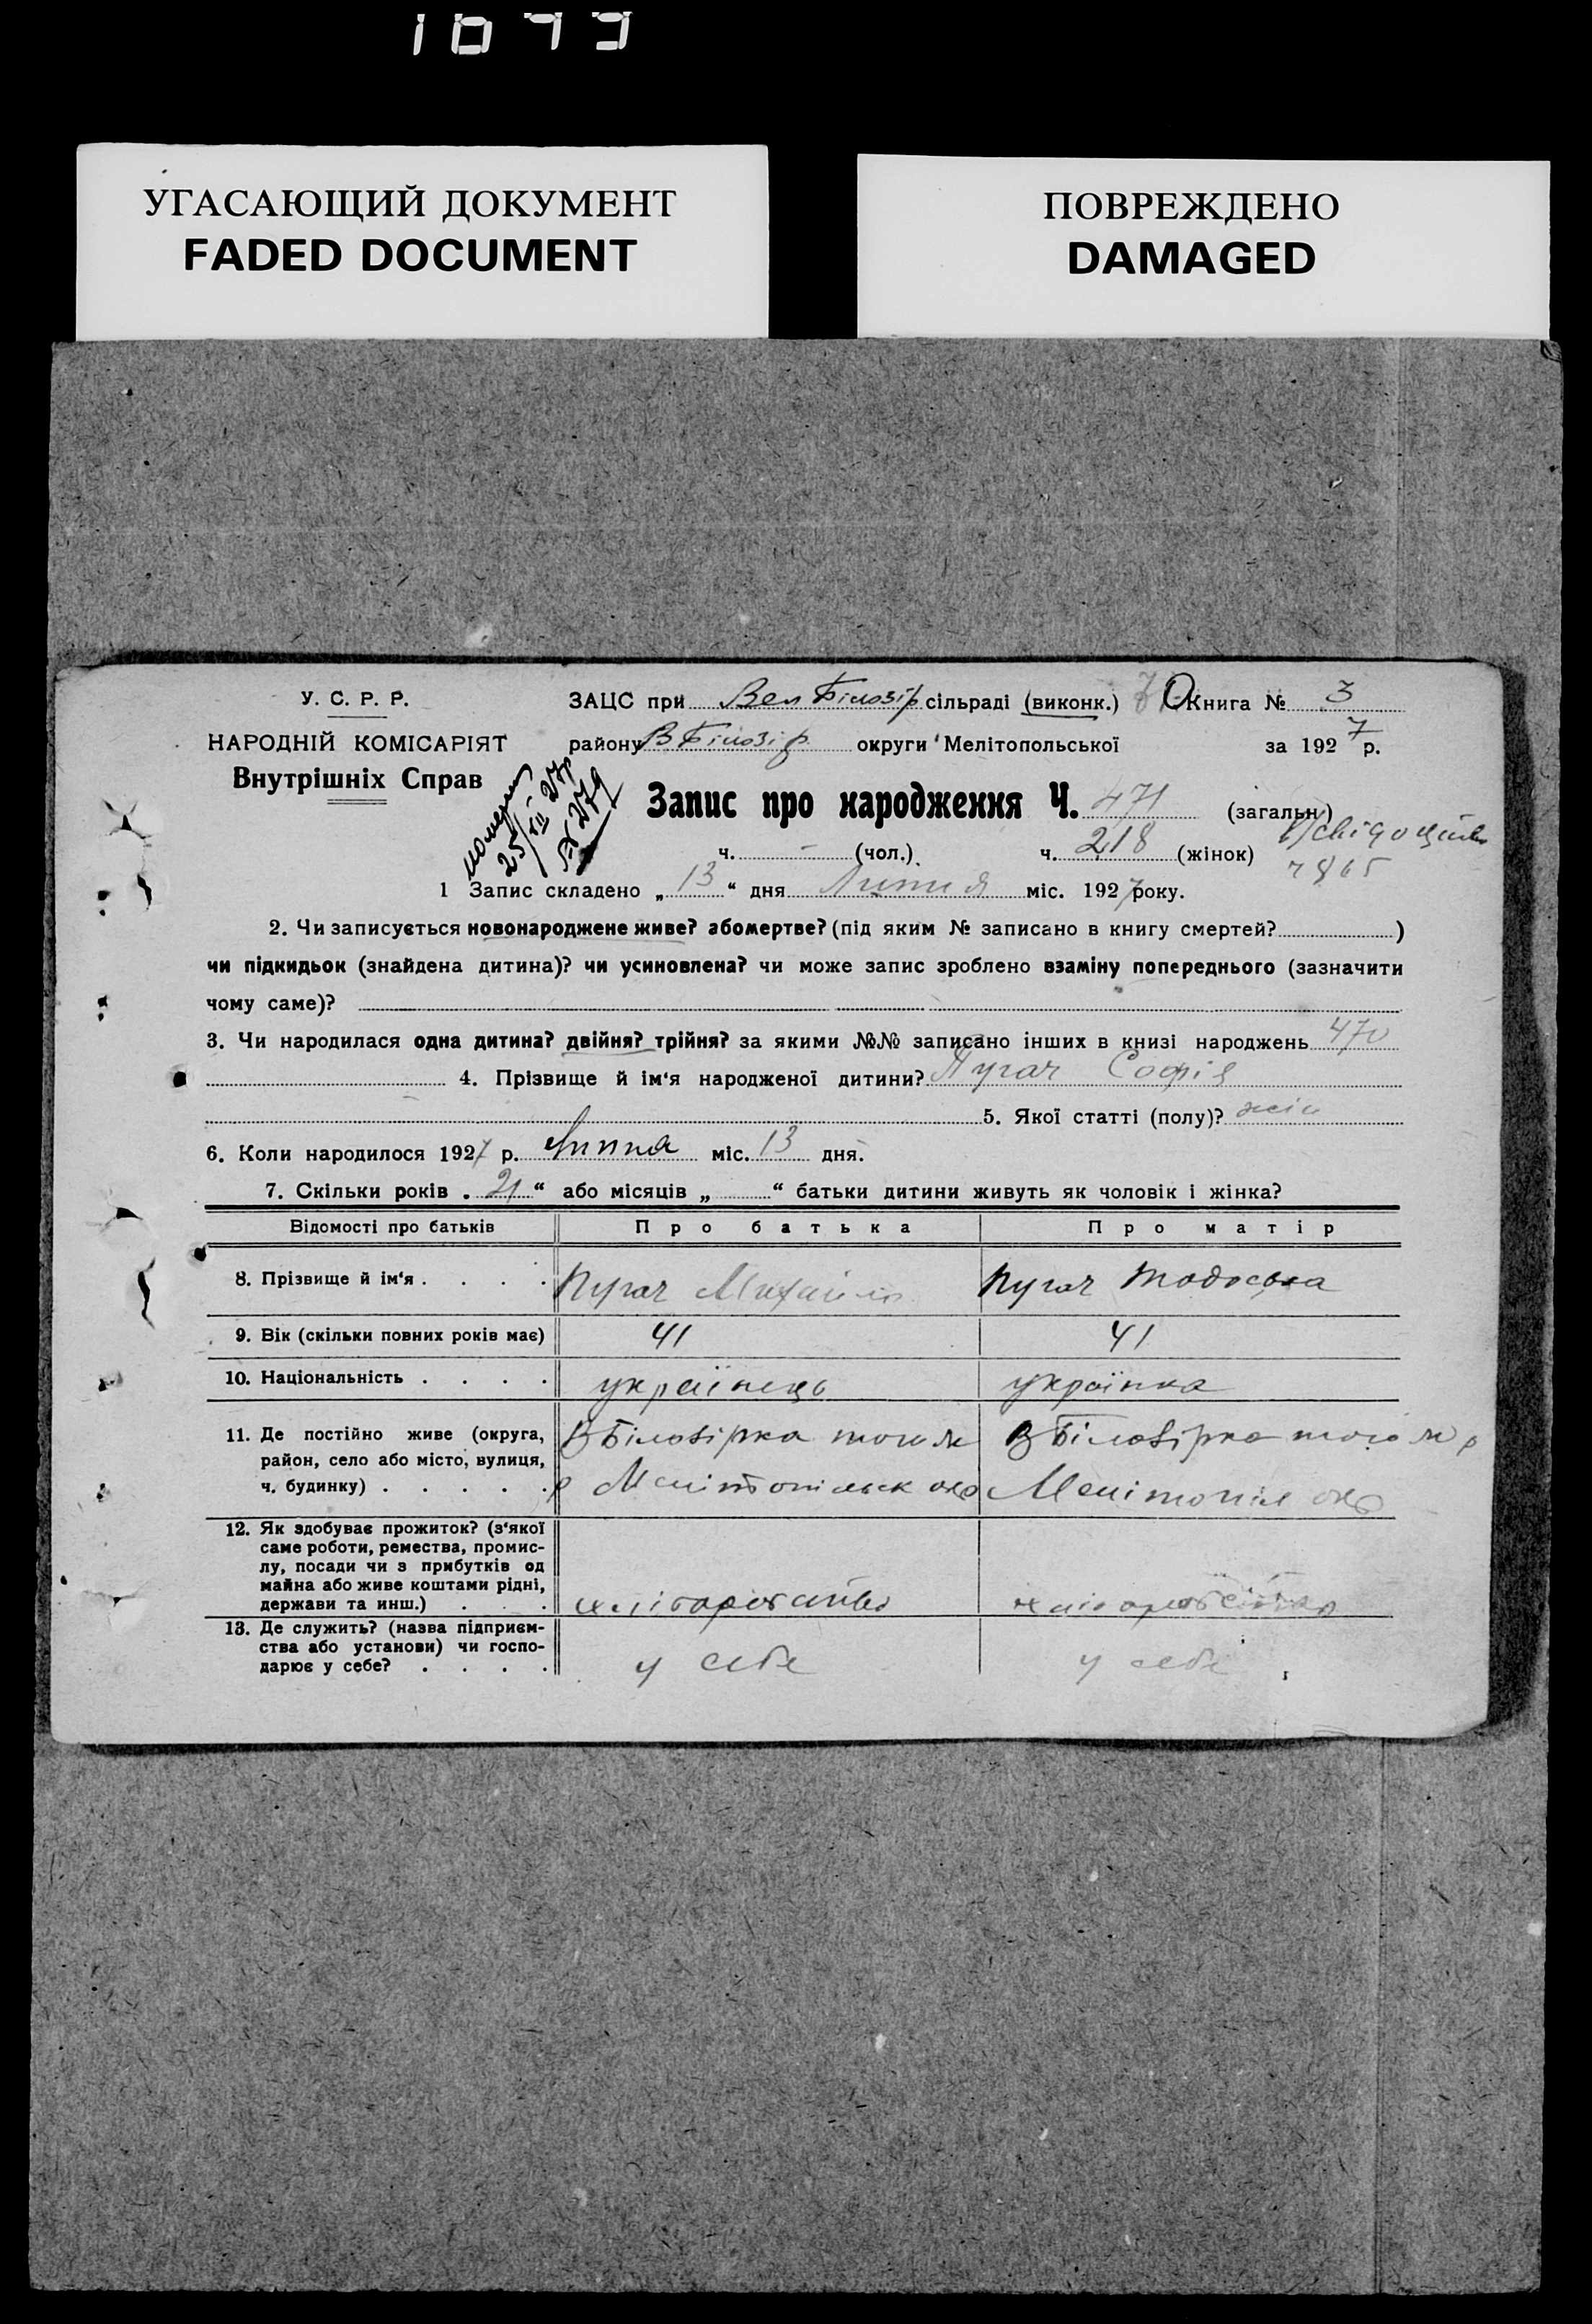 1649
УГАСАЮЩИЙ ДОКУМЕНТ
FADED DOCUMENT
ПОВРЕЖДЕНО
DAMAGED
У. С. Р. Р.
НАРОДНІЙ КОМІСАРІЯТ
Внутрішніх Справ
ЗАЦС при Вел Білозір сільраді (виконк.) Книга № 3
району В Білозір округи Мелітопольської за 1927 р.
номерт
25/XII 27р
№ 279
Запис про народження Ч. 471 (загальн.)
ч. – (чол.) ч. 218 (жінок)
1 Запис складено „13“ дня Липня міс. 1927 року.
2. Чи записується новонароджене живе? або мертве? (під яким № записано в книгу смертей? )
чи підкидьок (знайдена дитина)? чи усиновлена? чи може запис зроблено взаміну попереднього (зазначити
чому саме)?
3. Чи народилася одна дитина? двійня? трійня? за якими №№ записано інших в книзі народжень 470
4. Прізвище й ім‘я народженої дитини? Пугач Софія
5. Якої статті (полу)? жін
6. Коли народилося 1927 р. Липня міс. 13 дня.
7. Скільки років „21“ або місяців „ “ батьки дитини живуть як чоловік і жінка?
Відомості про батьків Про батька Про матір
8. Прізвище й ім‘я . . . . Пугач Михайло Пугач Тодоська
9. Вік (скільки повних років має) 41 41
10. Національність . . . . українець українка
11. Де постійно живе (округа, В Білозірка того ж В Білозірка того ж р
район, село або місто, вулиця,
ч. будинку) . . . . . р Мелітопільськ окр Мелітопіл окр
12. Як здобуває прожиток? (з‘якої
саме роботи, ремества, промис-
лу, посади чи з прибутків од
майна або живе коштами рідні,
держави та инш.) . . . хліборобство хліборобство
13. Де служить? (назва підприєм-
ства або установи) чи госпо-
дарює у себе? . . . . у себе у себе